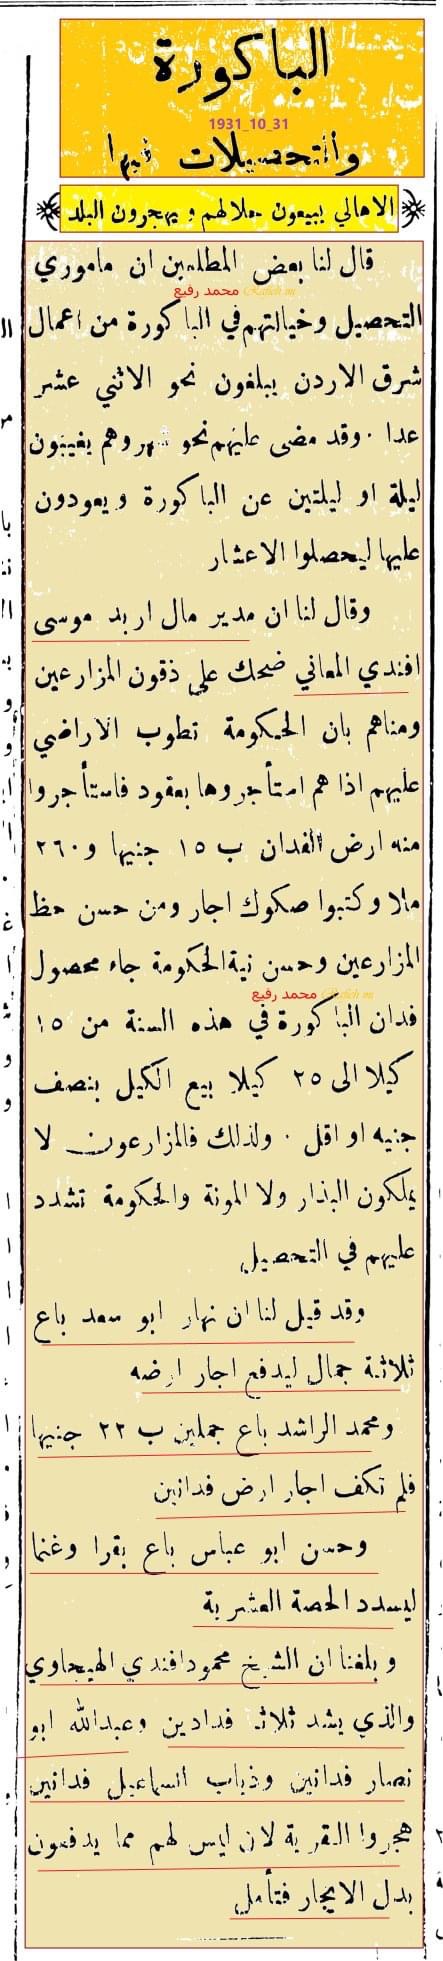 الباكورة
1931_10_31
والتحصيلات فيها
الاهالي يبيعون حلالهم ويهجرون البلد
قال لنا بعض المطلعين ان ماموري
محمد رفيع Rafieh mi
التحصيل وخيالتهم في الباكورة من اعمال
شرق الاردن يبلغون نحو الاثني عشر
عدا . وقد مضى عليهم نحو شهر وهم يغيبون
ليلة او ليلتين عن الباكورة ويعودون
عليها ليحصلوا الاعشار
وقال لنا ان مدير مال اربد موسى
افندي المعاني ضحك على ذقون المزارعين
ومناهم بان الحكومة تطوب الاراضي
عليهم اذا هم استأجروها بعقود فاستأجروا
منه ارض الفدان ب ١٥ جنيها و٢٦٠
ملا وكتبوا صكوك اجار ومن حسن حظ
المزارعين وحسن نية الحكومة جاء محصول
محمد رفيع Rafieh mi
فدان الباكورة في هذه السنة من ١٥
كيلا الى ٢٥ كيلا بيع الكيل بنصف
جنيه او اقل . ولذلك فالمزارعون لا
يملكون البذار ولا المونة والحكومة تشدد
عليهم في التحصيل
وقد قيل لنا ان نهار ابو سعد باع
ثلاثة جمال ليدفع اجار ارضه
ومحمد الراشد باع جملين ب ٢٢ جنيها
فلم تكف اجار ارض فدانين
وحسن ابو عباس باع بقرا وغنما
ليسدد الحصة العشرية
وبلغنا ان الشيخ محمود افندي الهيجاوي
والذي يشد ثلاث فدادين وعبدالله ابو
نصار فدانين وذياب اسماعيل فدانين
هجروا القرية لان ليس لهم مما يدفعون
بدل الايجار فتأمل